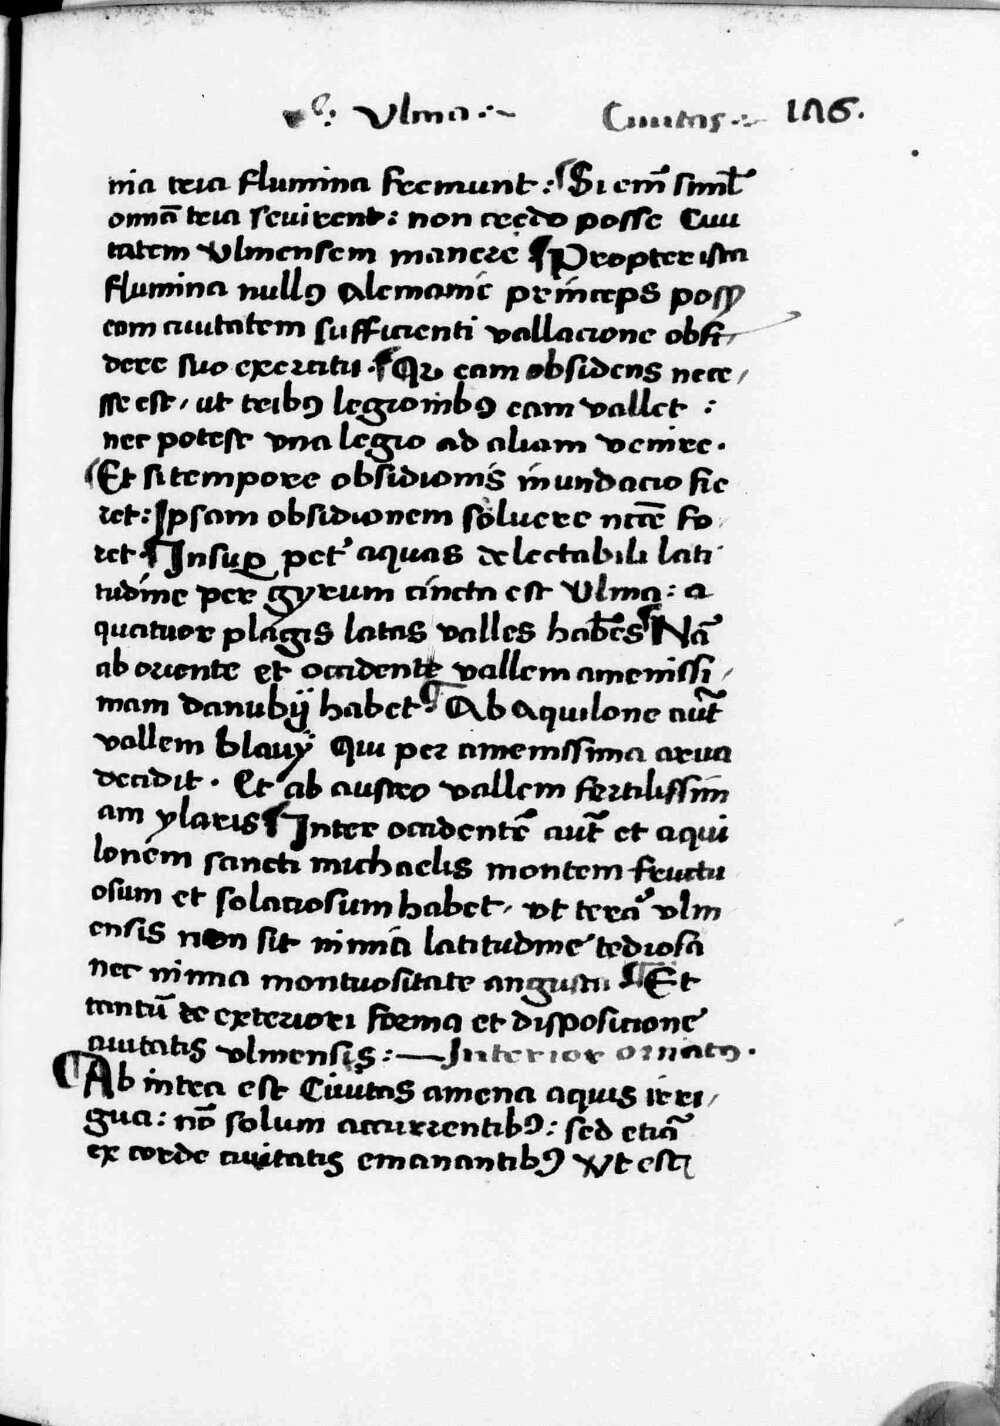 Vlma :~ Ciuitas :~ 176.
nia tria flumina fremunt : Si em̄ siml̄
omn̄ia tria seuirent : non credo posse Ciui
tatem vlmensem manere ¶ Propter ista
flumina nullꝯ Alemanie princeps posꝫ
eom ciuitatem sufficienti vallacione obsi,
dere suo exercitu . ¶ Qr eam obsidens nece,
sse est, ut tribꝯ legionibꝯ eam vallet :
nec potest vna legio ad aliam venire .
Et si tempore obsidionis inundacio fie
ret : Ipsam obsidionem soluere nccē fo
ret . ¶ Insuꝑ pret̉ aquas delectabili lati
tudine per gyrum cincta est Vlma : a
quatuor plagis latas valles hab̄es ¶ Nā
ab oriente et occidente vallem amenissi,
mam danubij habet . ¶ Ab Aquilone aut̄
vallem blauÿ Qui per amenissima arua
decidit . Et ab austro vallem fertilissim
am ylaris ¶ Inter occidentē aut̄ et aqui
lonem sancti michaelis montem fructu
osum et solaciosum habet, vt terā vlm
ensis non sit nimia latitudine tediosa
nec nimia montuositate angusta ¶ Et
tantū de exteriori forma et disposicione
ciuitatis vlmensis : — Interior ornatꝯ .
¶ Ab intra est Ciuitas amena aquis irri,
gua : nō solum accurrentibꝯ : sed etiā
ex corde ciuitatis emanantibꝯ Vt est